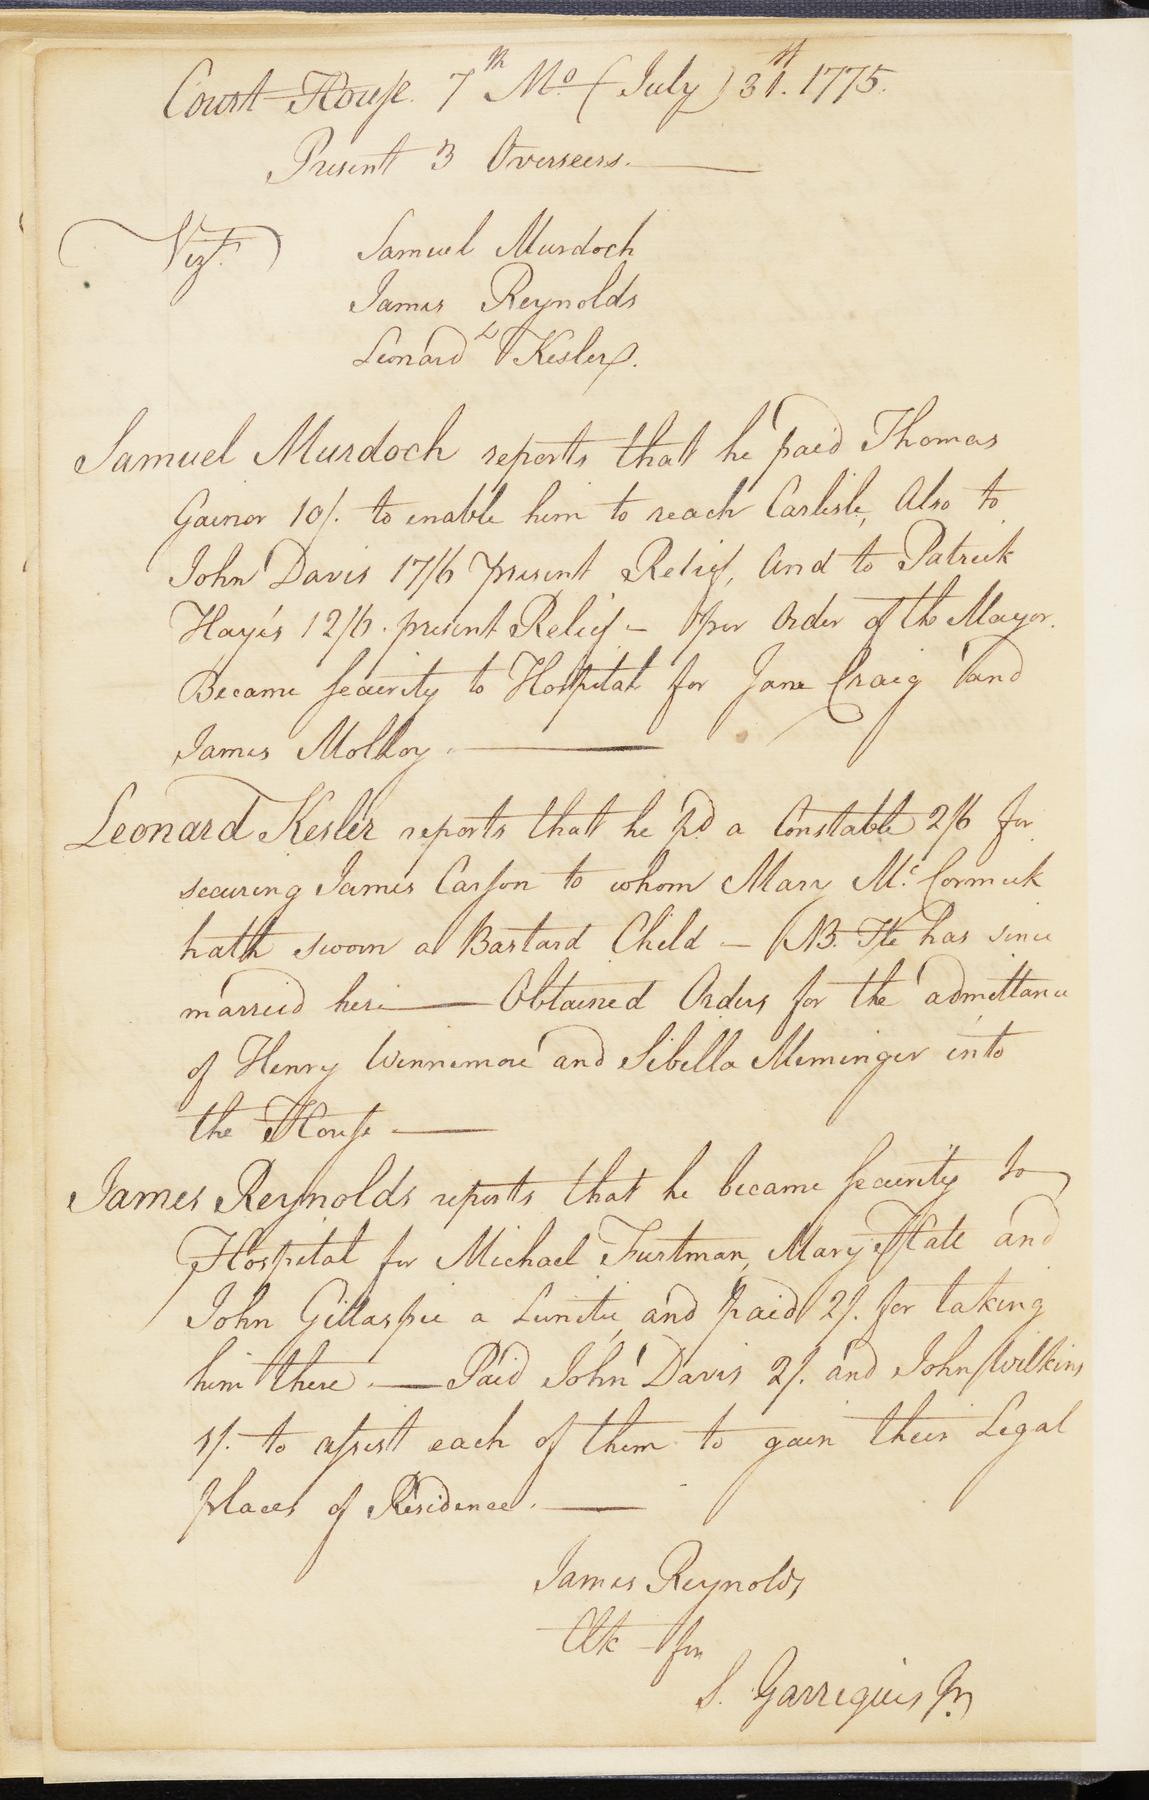 Court House. 7th Mo. (July) 31st. 1775.
Present 3 Overseers.
Vizt.
Samuel Murdoch
James Reynolds
Leonard Kesler.
Samuel Murdoch reports that he paid Thomas
Gainor 10/. to enable him to reach Carlisle, Also to
John Davis 17/6 present Relief, And to Patrick
Hayes 12/6. present Relief - per Order of the Mayor.
Became security to Hospital for Jane Craig and
James Molloy.
Leonard Kesler reports that he pd a Constable 2/6 for
securing James Carson to whom Mary McCormick
hath sworn a Bastard Child - (NB. He has since
married her - Obtained Orders for the admittance
of Henry Winnemore and Sibella Meminger into
the House -
James Reynolds reports that he became security to
Hospital for Michael Furtman, Mary Hall and
John Gillaspie a Lunitic, and paid 2/. for taking
him there. - Paid John Davis 2/. and John Wilkins
1/. to assist each of them to gain their Legal
places of Residence.
James Reynolds
Clk for
S. Garrigues Jr.